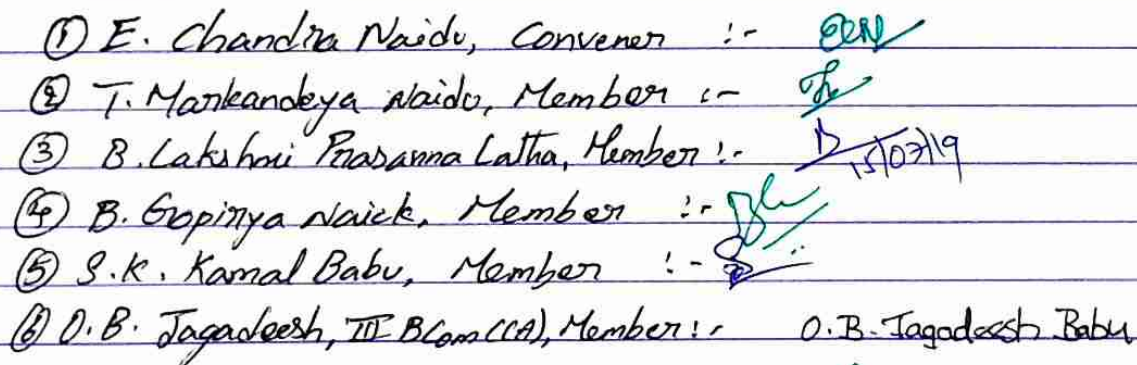 ① E. Chandra Naidu, Convener :-
② T. Markandeya Naidu, Member :-
③ B. Lakshmi Prasanna Latha, Member :- 15/07/19
④ B. Gopiriya Naick, Member :-
⑤ S.K. Kamal Babu, Member :-
⑥ O.B. Jagadeesh, III BCom (CA), Member :- O.B. Jagadeesh Babu